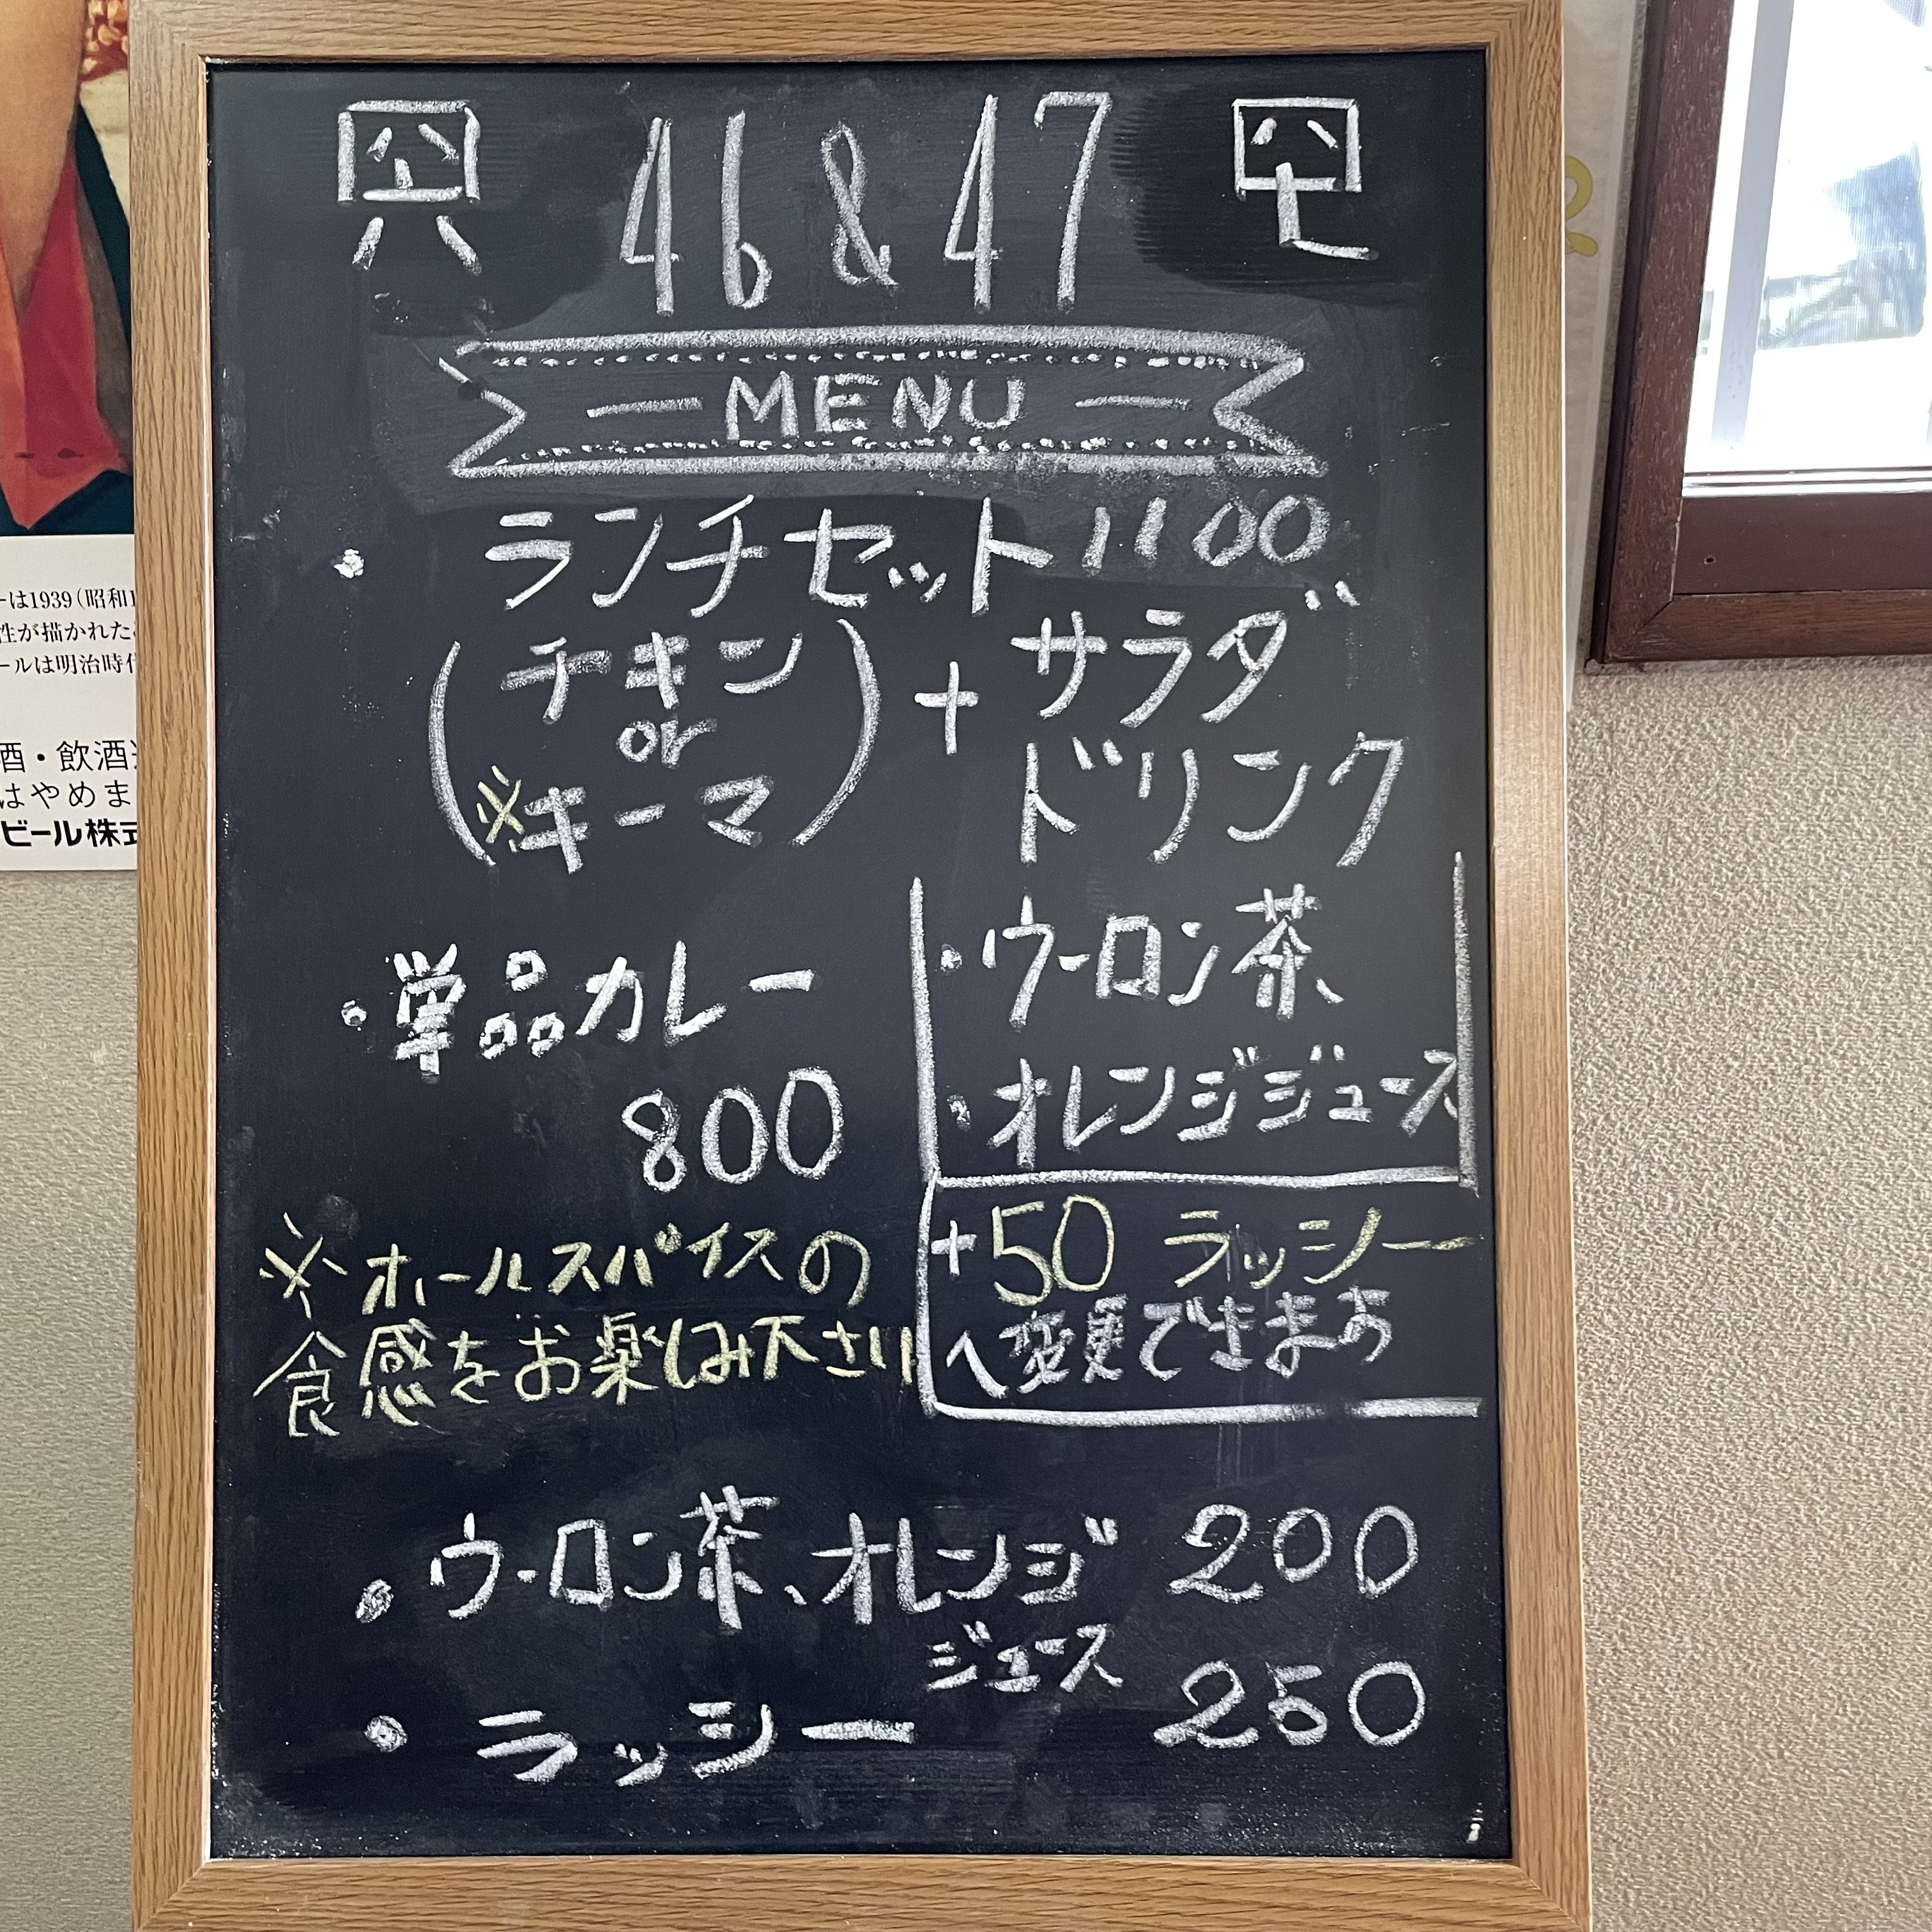 46 & 47
MENU
・ランチセット 1100
(チキン or ※キーマ) + サラダ ドリンク
・ウーロン茶、
・オレンジジュース
+50 ラッシー
へ変更できます
・単品カレー
800
※ホールスパイスの
食感をお楽しみ下さい
・ウーロン茶、オレンジ 200
ジュース
・ラッシー 250
ーは1939(昭和1
性が描かれた
ールは明治時代
酒・飲酒
はやめま
ビール株式